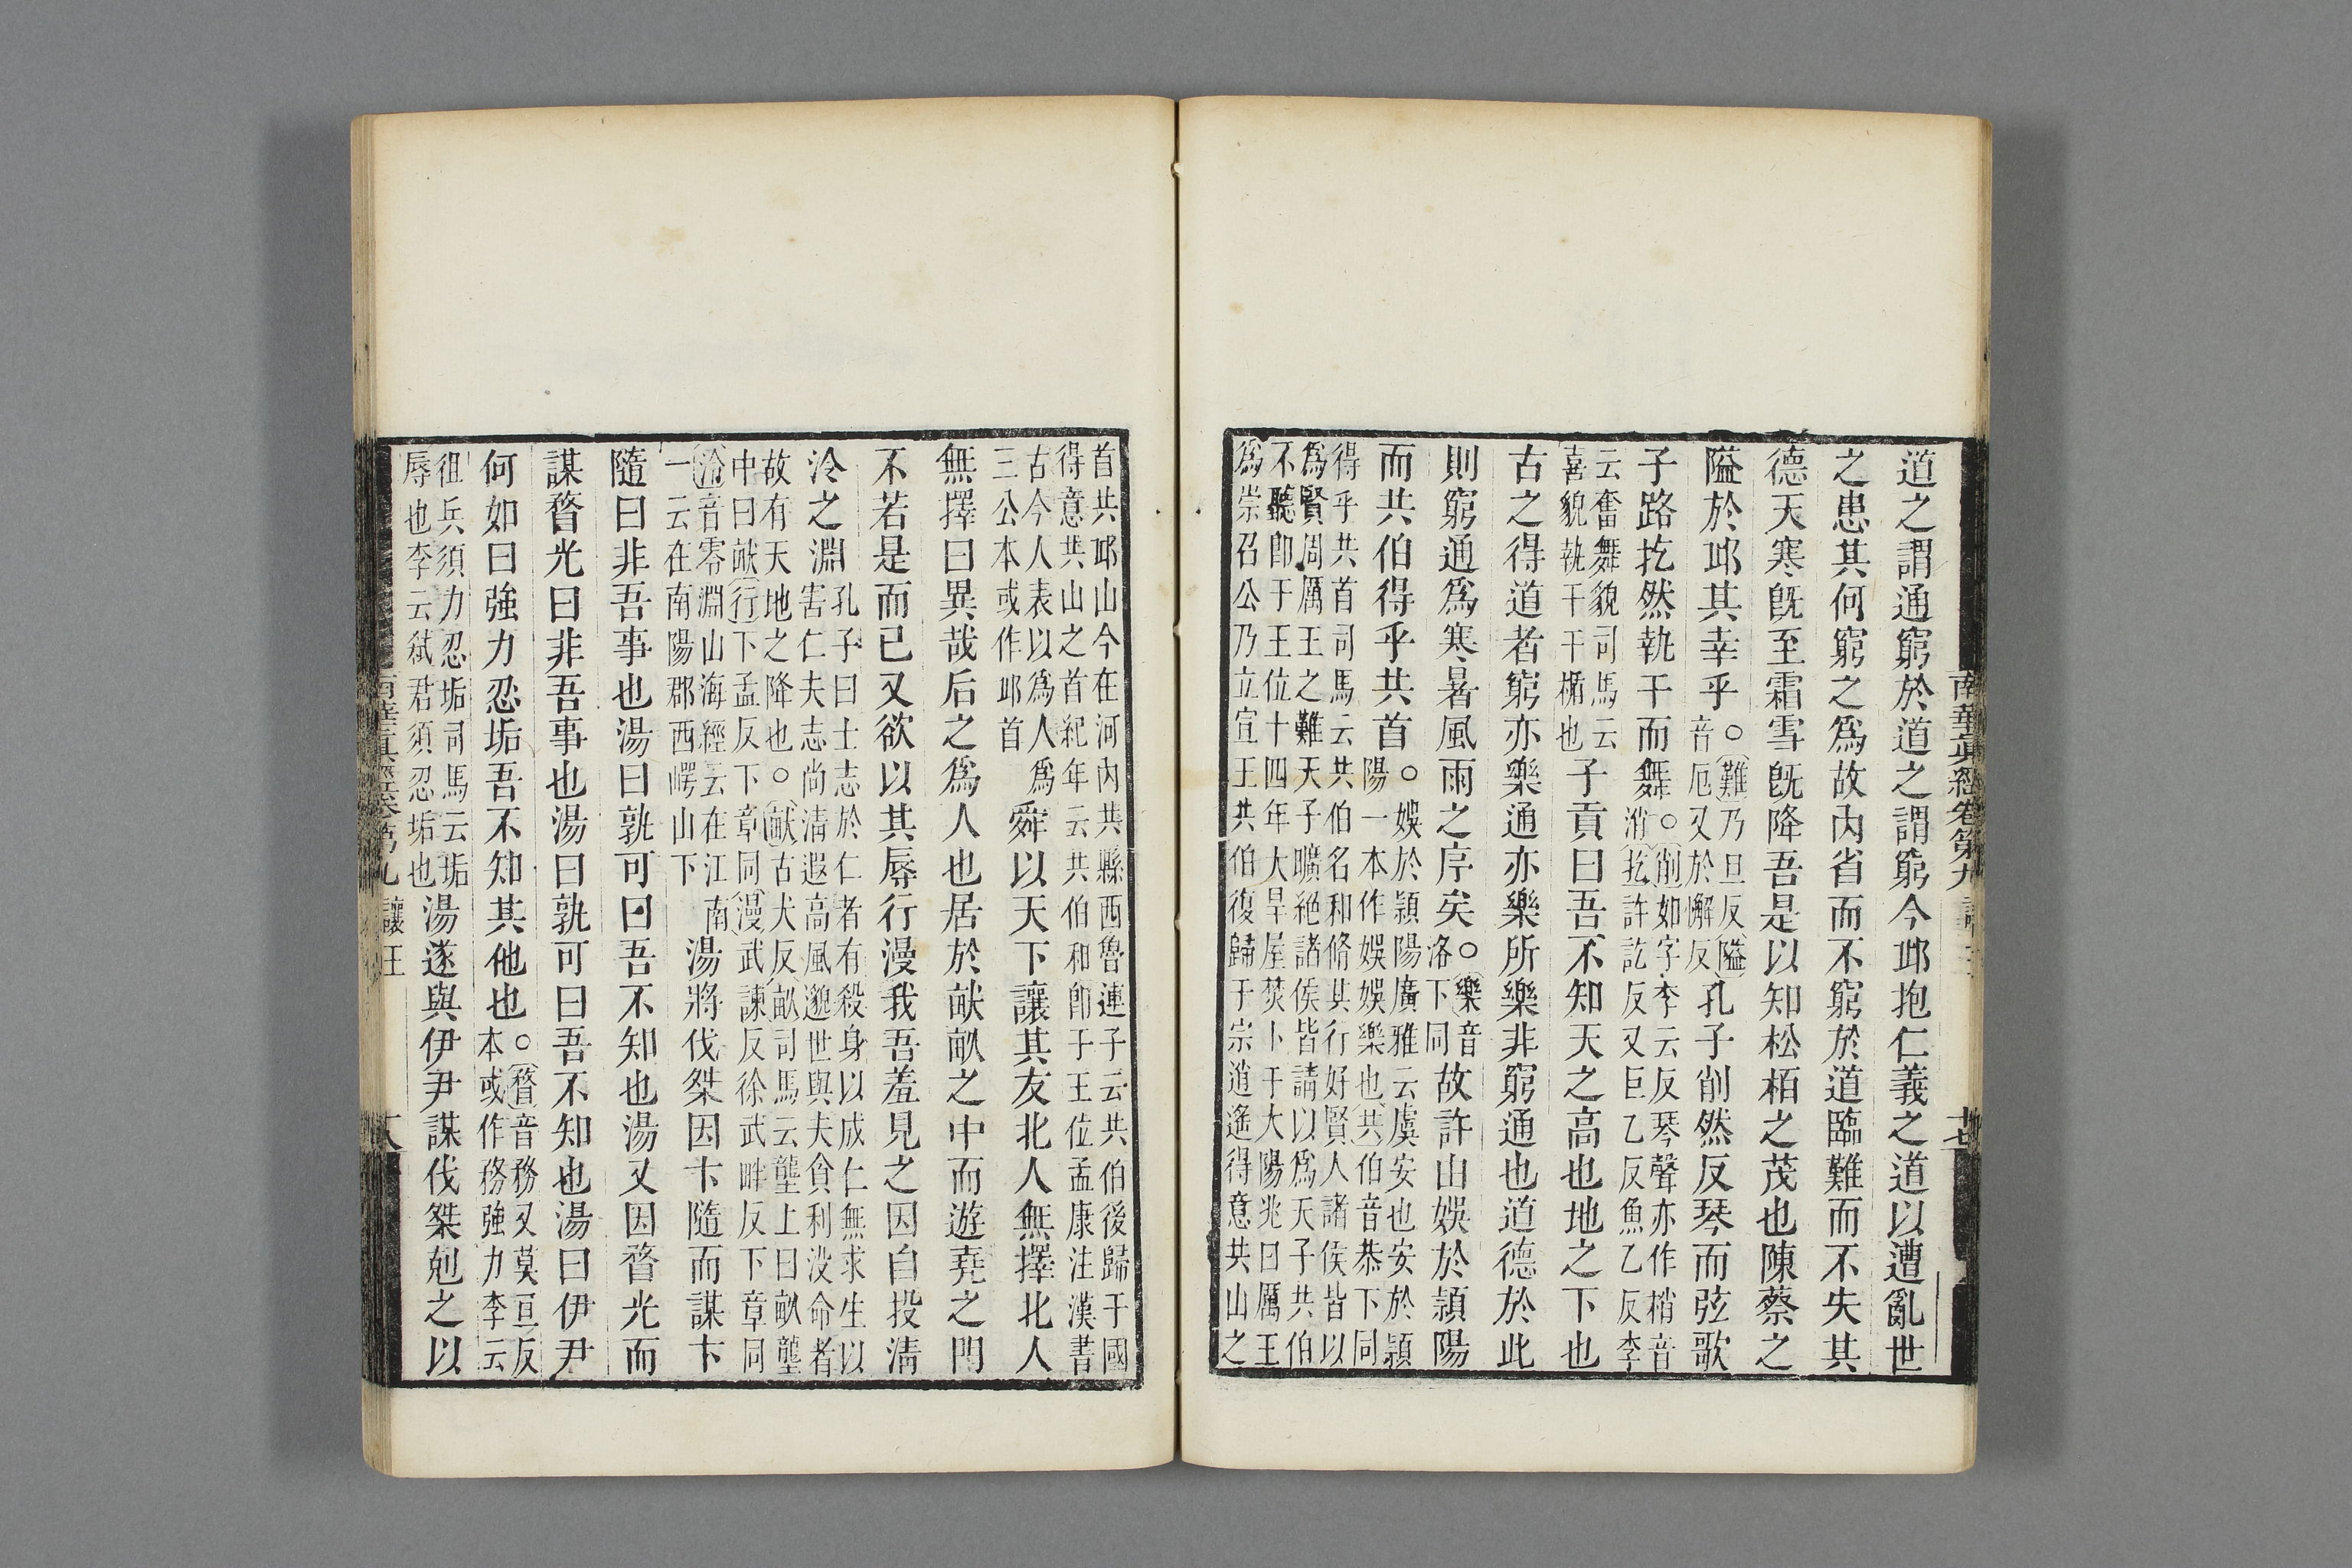 道之謂通窮於道之謂窮今邱抱仁義之道以遭亂世
之患其何窮之爲故內省而不窮於道臨難而不失其
德天寒旣至霜雪旣降吾是以知松栢之茂也陳蔡之
隘於邱其幸乎○難乃旦反隘音厄又於懈反孔子削然反琴而弦歌
子路扢然執干而舞○削如字李云反琴聲亦作梢音消扢許訖反又巨乙反魚乙反李
云奮舞貌司馬云喜貌執干干楯也子貢曰吾不知天之高也地之下也
古之得道者窮亦樂通亦樂所樂非窮通也道德於此
則窮通爲寒暑風雨之序矣○樂音洛下同故許由娛於潁陽
而共伯得乎共首○娛於潁陽廣雅云虞安也安於潁陽一本作娛娛樂也共伯音恭下同
得乎共首司馬云共伯名和脩其行好賢人諸侯皆以爲賢周厲王之難天子曠絕諸侯皆請以爲天子共伯
不聽卽于王位十四年大旱屋焚卜于大陽兆曰厲王爲祟召公乃立宣王共伯復歸于宗逍遙得意共山之
南華眞經卷第九
十七
首共邱山今在河內共縣西魯連子云共伯後歸于國得意共山之首紀年云共伯和卽于王位孟康注漢書
古今人表以爲人爲三公本或作邱首舜以天下讓其友北人無擇北人
無擇曰異哉后之爲人也居於畎畝之中而遊堯之門
不若是而已又欲以其辱行漫我吾羞見之因自投淸
泠之淵孔子曰士志於仁者有殺身以成仁無求生以害仁夫志尚淸遐高風邈世與夫貪利没命者
故有天地之降也○畎古犬反畝司馬云壟上曰畝壟中曰畎行下孟反下章同漫武諫反徐武畔反下章同
泠音零淵山海經云在江南一云在南陽郡西崿山下湯將伐桀因卞隨而謀卞
隨曰非吾事也湯曰孰可曰吾不知也湯又因瞀光而
謀瞀光曰非吾事也湯曰孰可曰吾不知也湯曰伊尹
何如曰強力忍垢吾不知其他也○瞀音務又莫亘反本或作務強力李云
徂兵須力忍垢司馬云垢辱也李云弑君須忍垢也湯遂與伊尹謀伐桀剋之以
南華眞經卷第九 讓王
十八